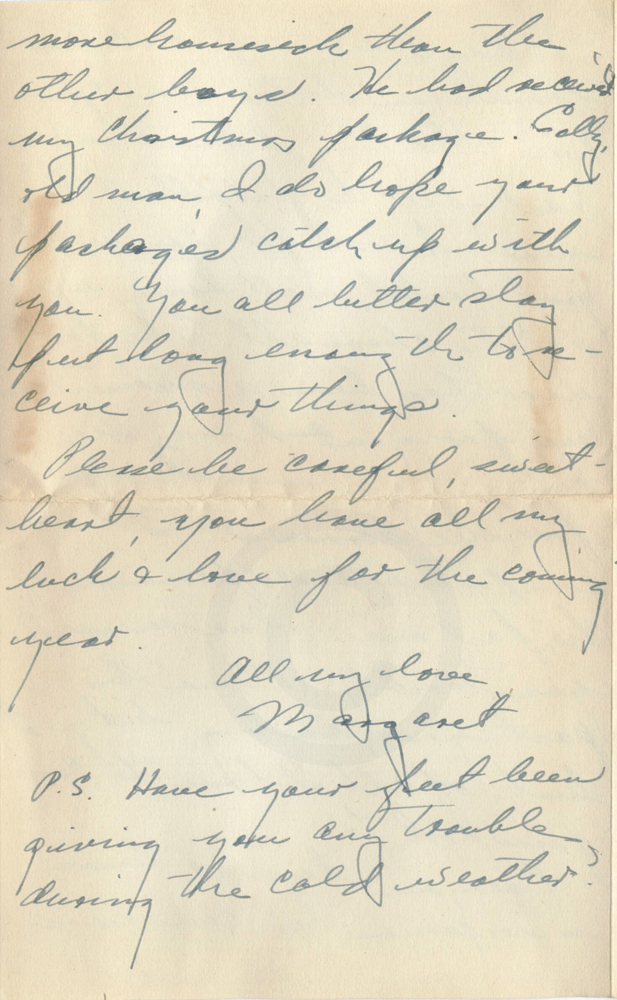 more homesick than the
other boys. He had received
my Christmas package. Golly,
old man, I do hope your
packages catch up with
you. You all better stay
put long enough to re-
ceive your things.
Please be careful, sweet-
heart, you have all my
luck & love for the coming
year.
All my love,
Margaret
P.S. Have your feet been
giving you any trouble
during the cold weather?